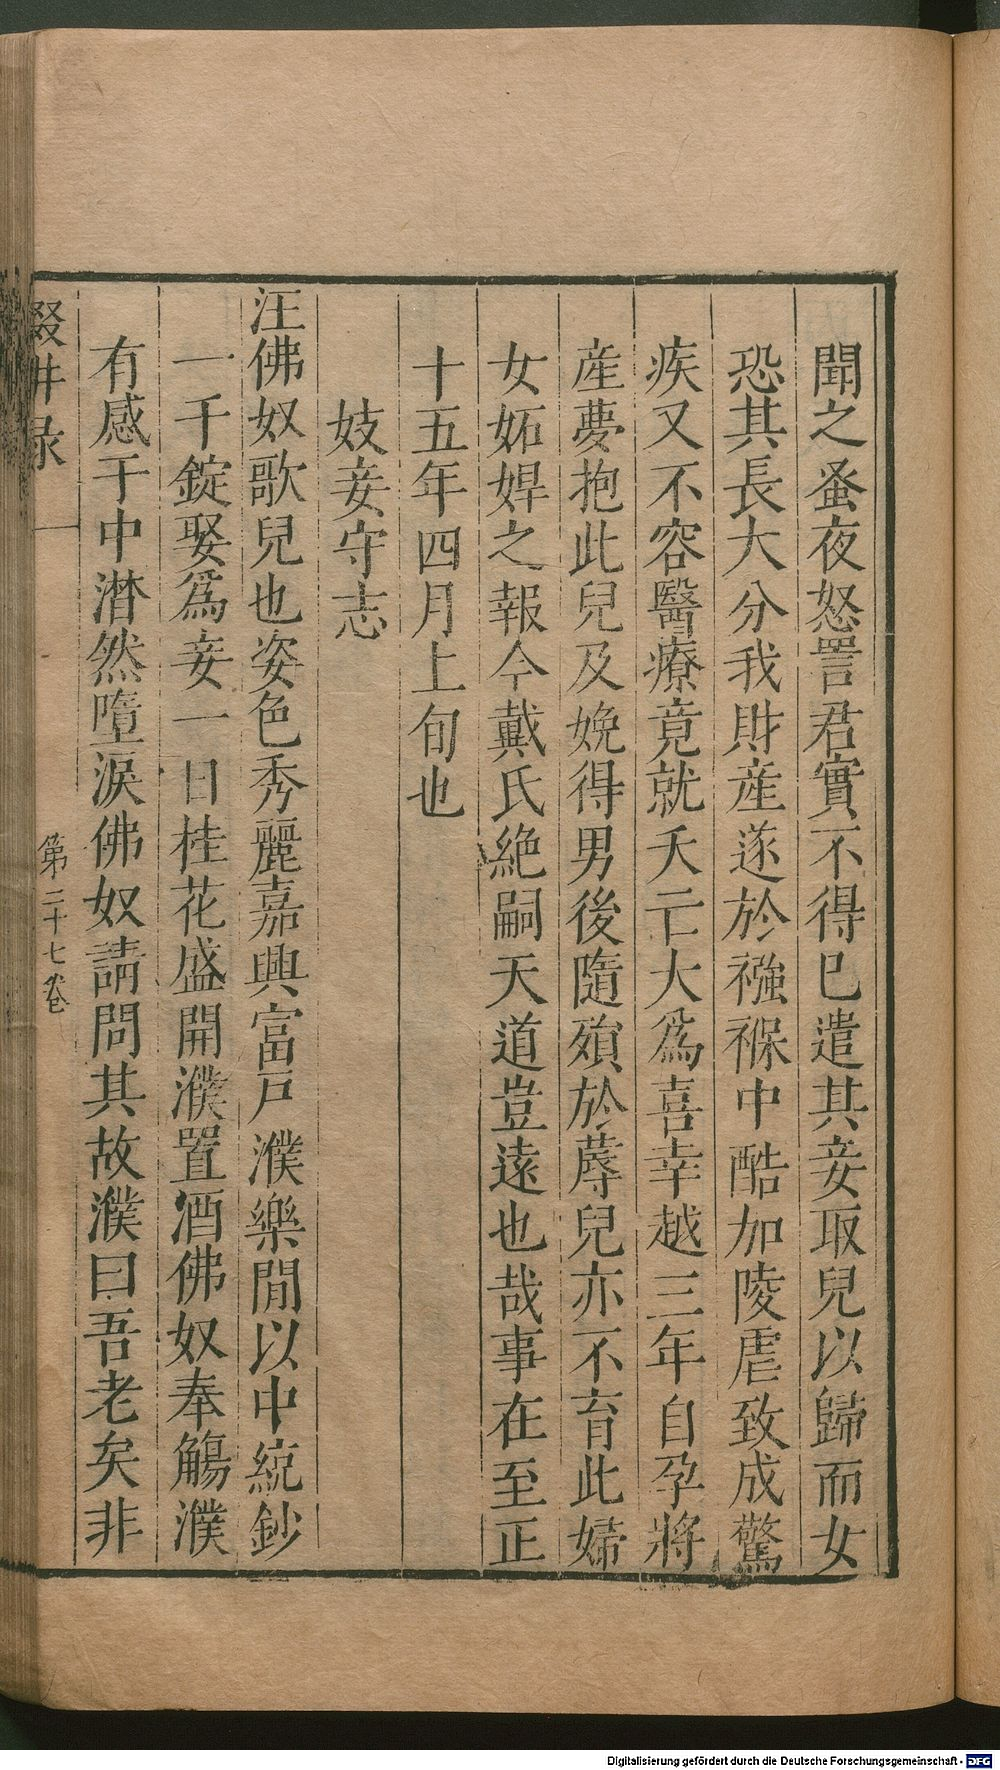 聞之蚤夜怒詈君實不得巳遣其妾取兒以歸而女
恐其長大分我財産遂於襁褓中酷加陵虐致成驚
疾又不容醫療竟就夭亡大爲喜幸越三年自孕將
産夢抱此兒及娩得男後隨殞於蓐兒亦不育此婦
女妬婢之報今戴氏絶嗣天道豈遠也哉事在至正
十五年四月上旬也
妓妾守志
汪佛奴歌兒也姿色秀麗嘉興富戸濮樂閒以中統鈔
一千錠娶爲妾一日桂花盛開濮置酒佛奴奉觴濮
有感于中潸然墮淚佛奴請問其故濮曰吾老矣非
輟耕录
第二十七卷
Digitalisierung gefördert durch die Deutsche Forschungsgemeinschaft - DFG